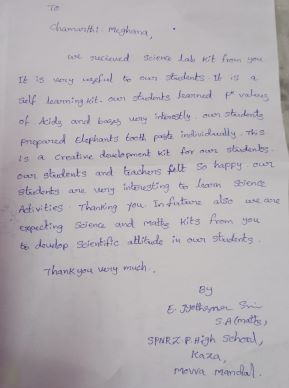 To
Chamarthi Meghana,
We recieved science Lab Kit from you
It is very useful to our students. It is a
Self learning kit. our students learned PH values
of Acids and bases very interestly. our students
prepared Elephants tooth paste individually. This
is a creative development kit for our students.
our students and teachers felt so happy. our
students are very interesting to learn science
Activities. Thanking you. In future also we are
expecting Science and maths kits from you
to develop scientific attitude in our students.
Thank you very much..
By
E. Sri
S.A(maths),
SPNRZ.P.High School,
Kaza,
Movva Mandal.